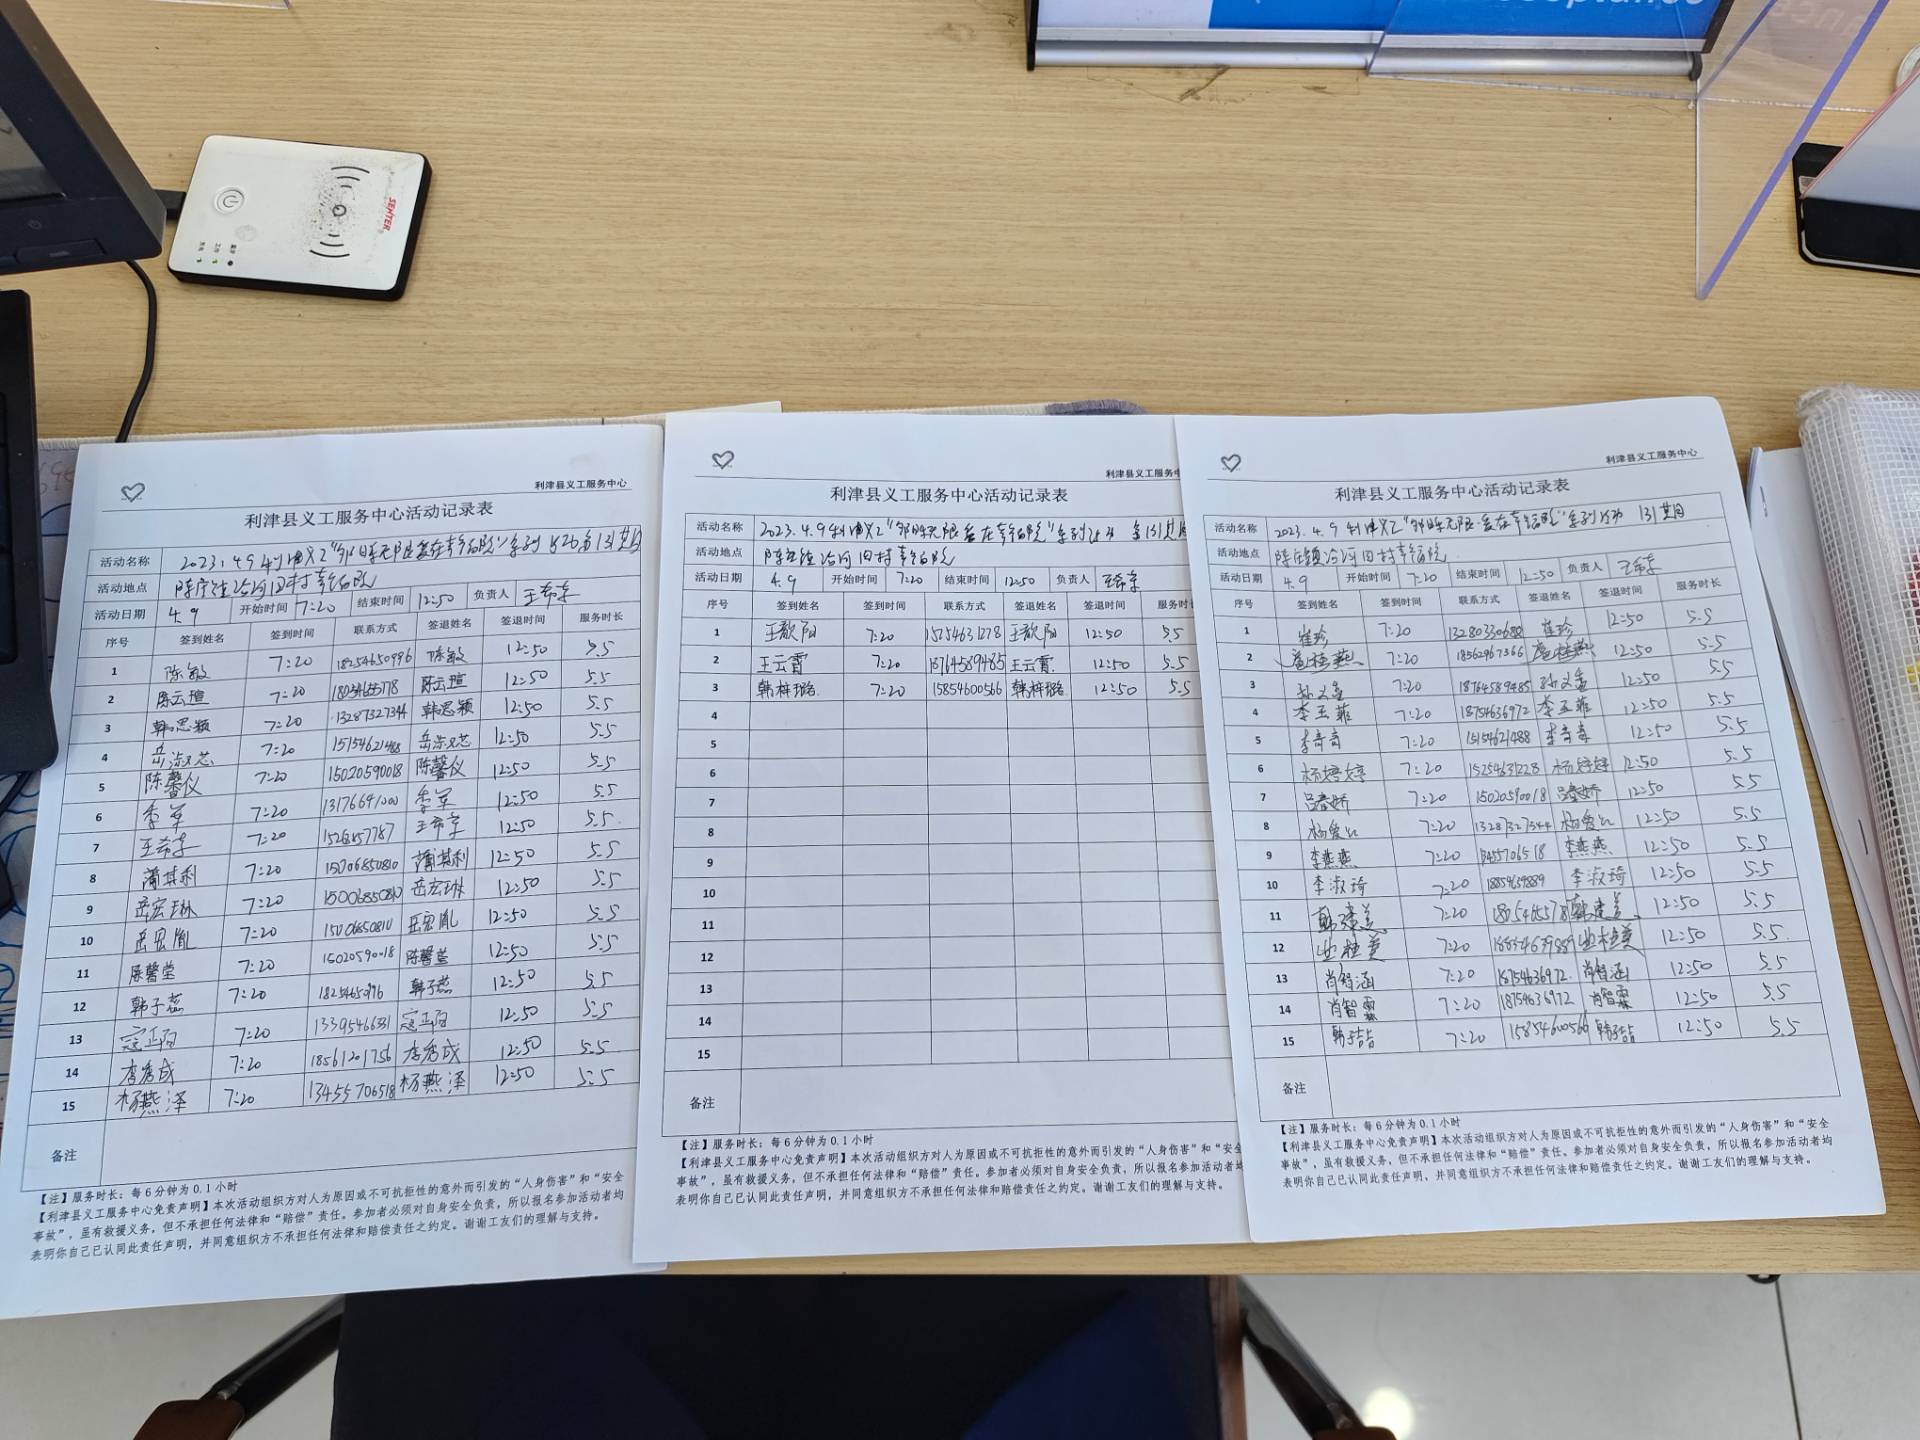 SENTER
利津县义工服务中心
利津县义工服务中心活动记录表
活动名称 2023.4.9
活动地点
活动日期 4.9 开始时间 7:20 结束时间 12:50 负责人 王希军
序号 签到姓名 签到时间 联系方式 签退姓名 签退时间 服务时长
1 陈敏 7:20 18254650996 陈敏 12:50 5.5
2 陈云瑄 7:20 陈云瑄 12:50 5.5
3 韩思颖 7:20 13287327344 韩思颖 12:50 5.5
4 7:20 12:50 5.5
5 陈馨仪 7:20 15020590018 陈馨仪 12:50 5.5
6 李军 7:20 李军 12:50 5.5
7 王希军 7:20 王希军 12:50 5.5
8 蒲其利 7:20 蒲其利 12:50 5.5
9 岳宏琳 7:20 岳宏琳 12:50 5.5
10 岳宏胤 7:20 岳宏胤 12:50 5.5
11 陈馨莹 7:20 15020590018 陈馨莹 12:50 5.5
12 韩子蕊 7:20 12:50 5.5
13 寇正阳 7:20 寇正阳 12:50 5.5
14 李秀成 7:20 李秀成 12:50 5.5
15 杨燕泽 7:20 13455706518 杨燕泽 12:50 5.5
备注
【注】服务时长：每6分钟为0.1小时
【利津县义工服务中心免责声明】本次活动组织方对人为原因或不可抗拒性的意外而引发的“人身伤害”和“安全
事故”，虽有救援义务，但不承担任何法律和“赔偿”责任。参加者必须对自身安全负责，所以报名参加活动者均
表明你自己已认同此责任声明，并同意组织方不承担任何法律和赔偿责任之约定。谢谢工友们的理解与支持。
利津县义工服务中
利津县义工服务中心活动记录表
活动名称 2023.4.9
活动地点
活动日期 4.9 开始时间 7:20 结束时间 12:50 负责人 王希军
序号 签到姓名 签到时间 联系方式 签退姓名 签退时间 服务时长
1 王歆阳 7:20 王歆阳 12:50 5.5
2 王云霄 7:20 18764589485 王云霄 12:50 5.5
3 韩梓璐 7:20 15854600566 韩梓璐 12:50 5.5
4
5
6
7
8
9
10
11
12
13
14
15
备注
【注】服务时长：每6分钟为0.1小时
【利津县义工服务中心免责声明】本次活动组织方对人为原因或不可抗拒性的意外而引发的“人身伤害”和“安全
事故”，虽有救援义务，但不承担任何法律和“赔偿”责任。参加者必须对自身安全负责，所以报名参加活动者均
表明你自己已认同此责任声明，并同意组织方不承担任何法律和赔偿责任之约定。谢谢工友们的理解与支持。
利津县义工服务中心
利津县义工服务中心活动记录表
活动名称 2023.4.9
活动地点
活动日期 4.9 开始时间 7:20 结束时间 12:50 负责人 王希军
序号 签到姓名 签到时间 联系方式 签退姓名 签退时间 服务时长
1 崔珍 7:20 13280330688 崔珍 12:50 5.5
2 7:20 18562967366 12:50 5.5
3 孙义孟 7:20 18764589485 孙义孟 12:50 5.5
4 李玉菲 7:20 18754636972 李玉菲 12:50 5.5
5 李奇奇 7:20 12:50 5.5
6 杨婷婷 7:20 15254631228 杨婷婷 12:50 5.5
7 吕春娇 7:20 15020590018 吕春娇 12:50 5.5
8 7:20 13287327344 12:50 5.5
9 李燕燕 7:20 李燕燕 12:50 5.5
10 李淑琦 7:20 李淑琦 12:50 5.5
11 韩建美 7:20 韩建美 12:50 5.5
12 7:20 12:50 5.5
13 肖智涵 7:20 肖智涵 12:50 5.5
14 肖智霖 7:20 18754636972 肖智霖 12:50 5.5
15 7:20 15854600566 12:50 5.5
备注
【注】服务时长：每6分钟为0.1小时
【利津县义工服务中心免责声明】本次活动组织方对人为原因或不可抗拒性的意外而引发的“人身伤害”和“安全
事故”，虽有救援义务，但不承担任何法律和“赔偿”责任。参加者必须对自身安全负责，所以报名参加活动者均
表明你自己已认同此责任声明，并同意组织方不承担任何法律和赔偿责任之约定。谢谢工友们的理解与支持。